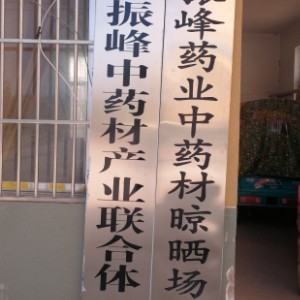 振峰中药材产业联合体
振峰药业中药材晾晒场